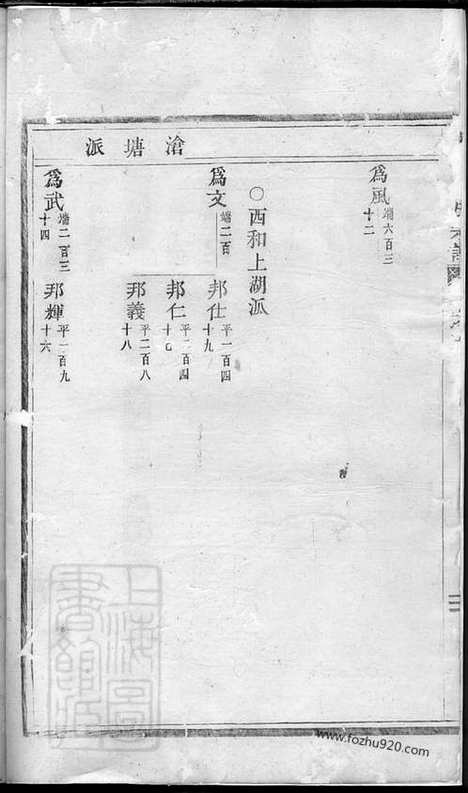 滄塘派
為風 端六百三十二
〇西和上湖派
為文 端二百
邦仕 平一百四十九
邦仁
邦義 平二百八十八
為武 端二百三十四
邦輝 平一百九十六
上海圖書館藏
www.fozhu920.com